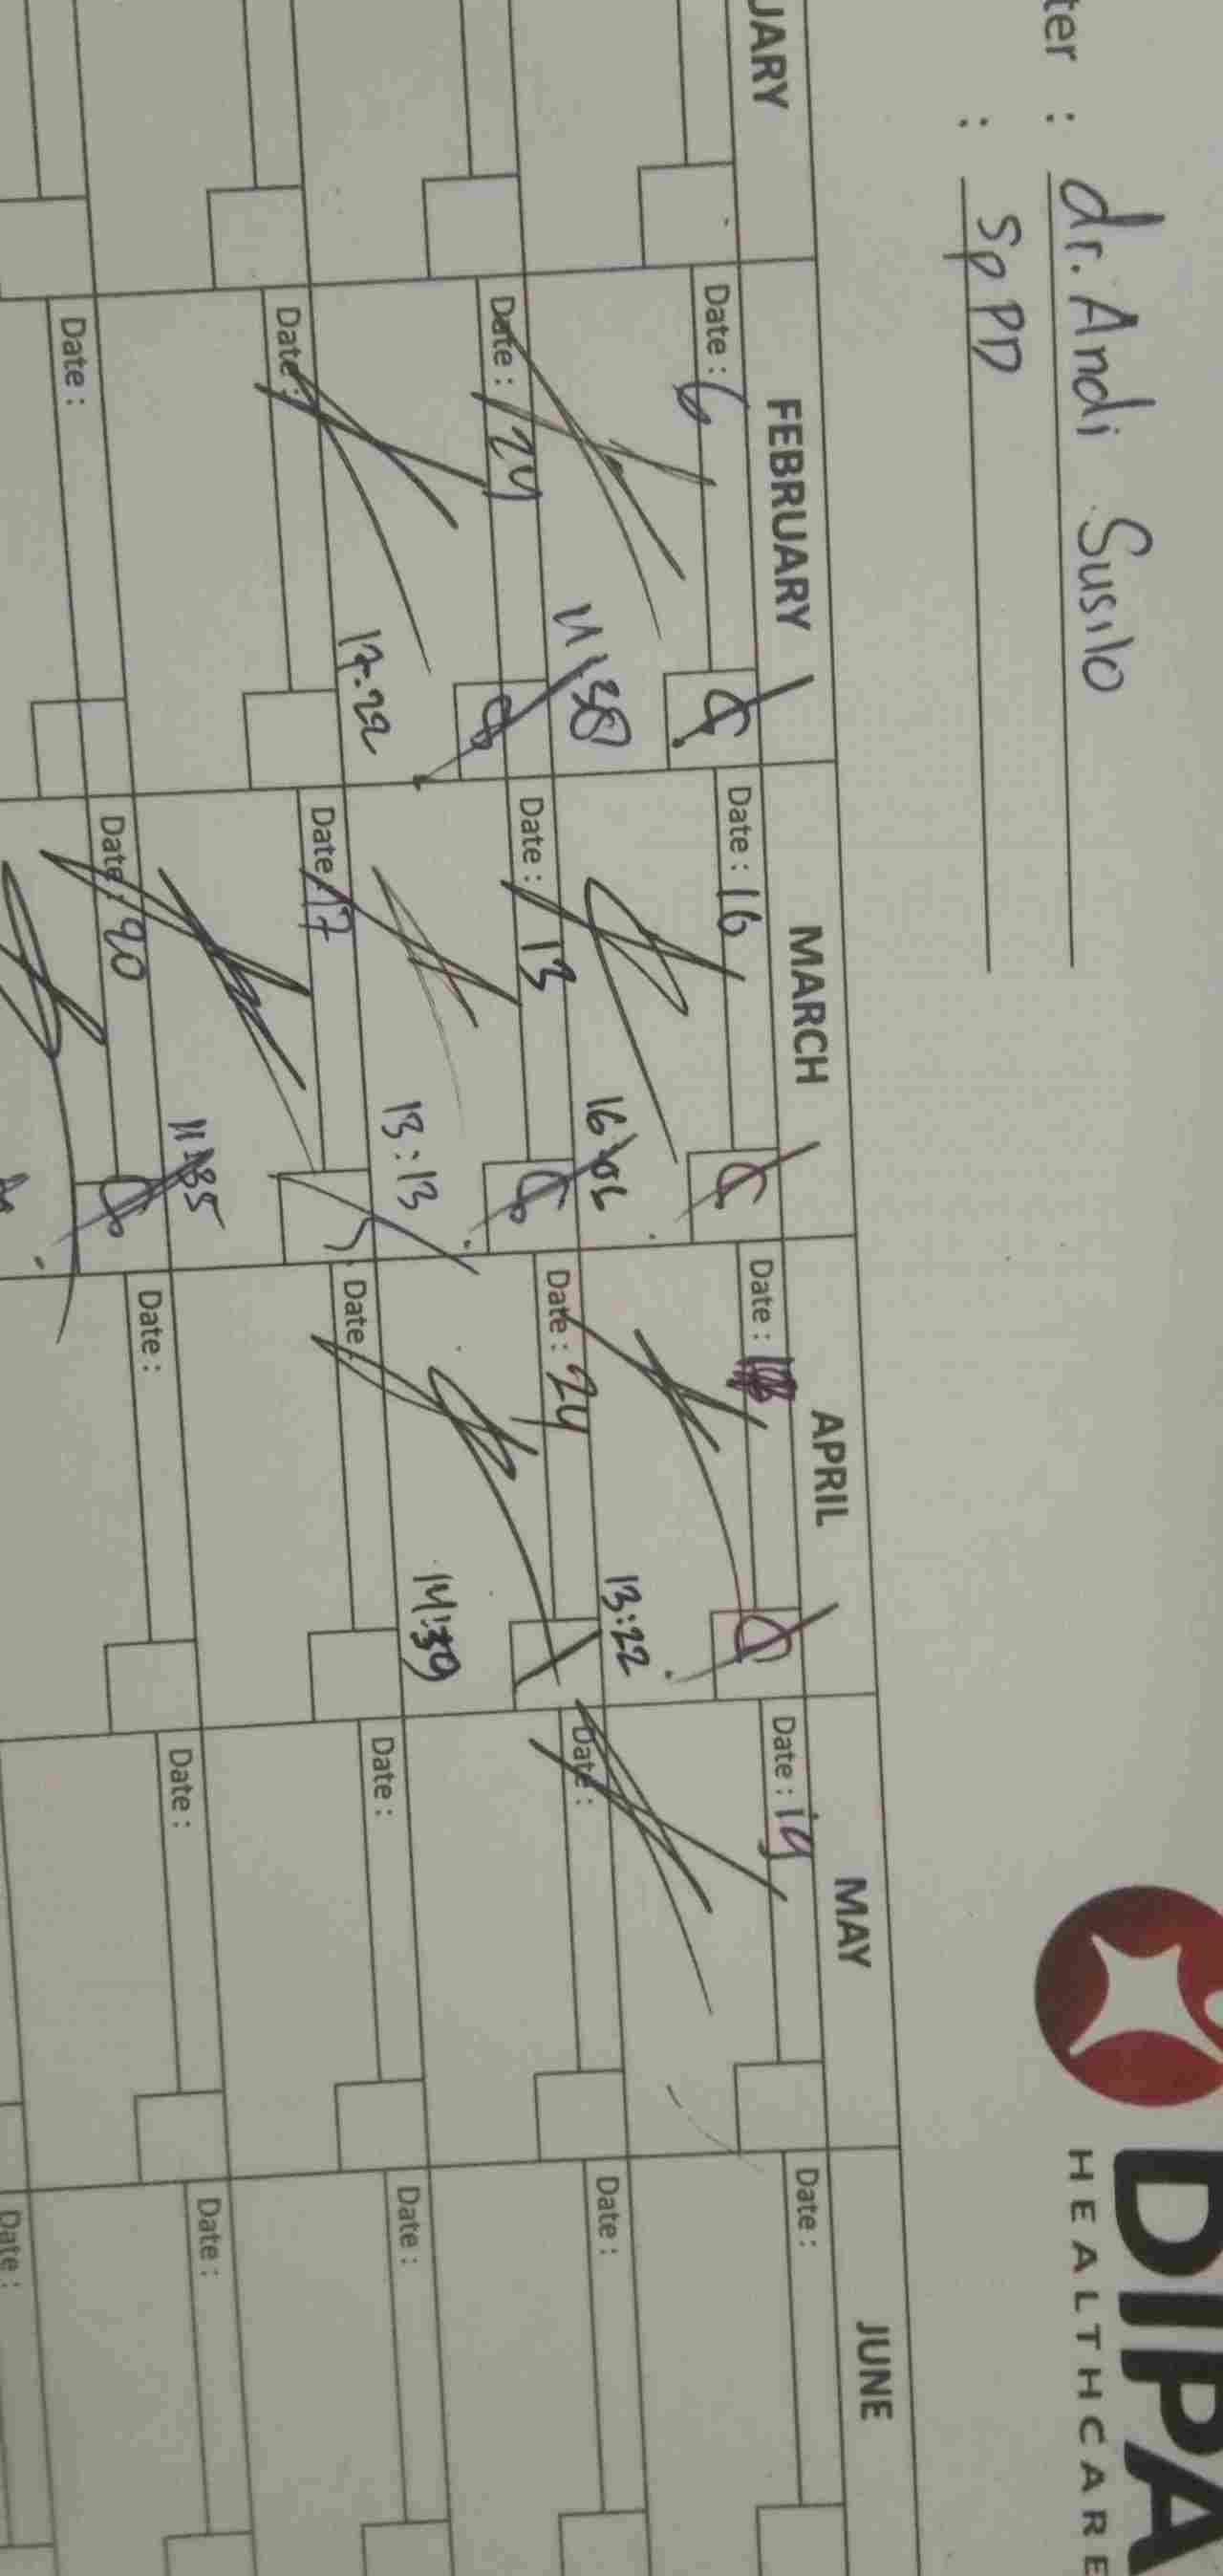 DIPA
HEALTHCARE
ter : dr. Andi Susilo
: Sp PD
UARY FEBRUARY MARCH APRIL MAY JUNE
Date : 6 Date : 16 Date : Date : 19 Date :
11:38 16:06 13:22
Date : 24 Date : 13 Date : 24 Date : Date :
17.29 13:13 14:39
Date : Date : 17 Date : Date : Date :
11:35
Date : Date : 20 Date : Date : Date :
Date :